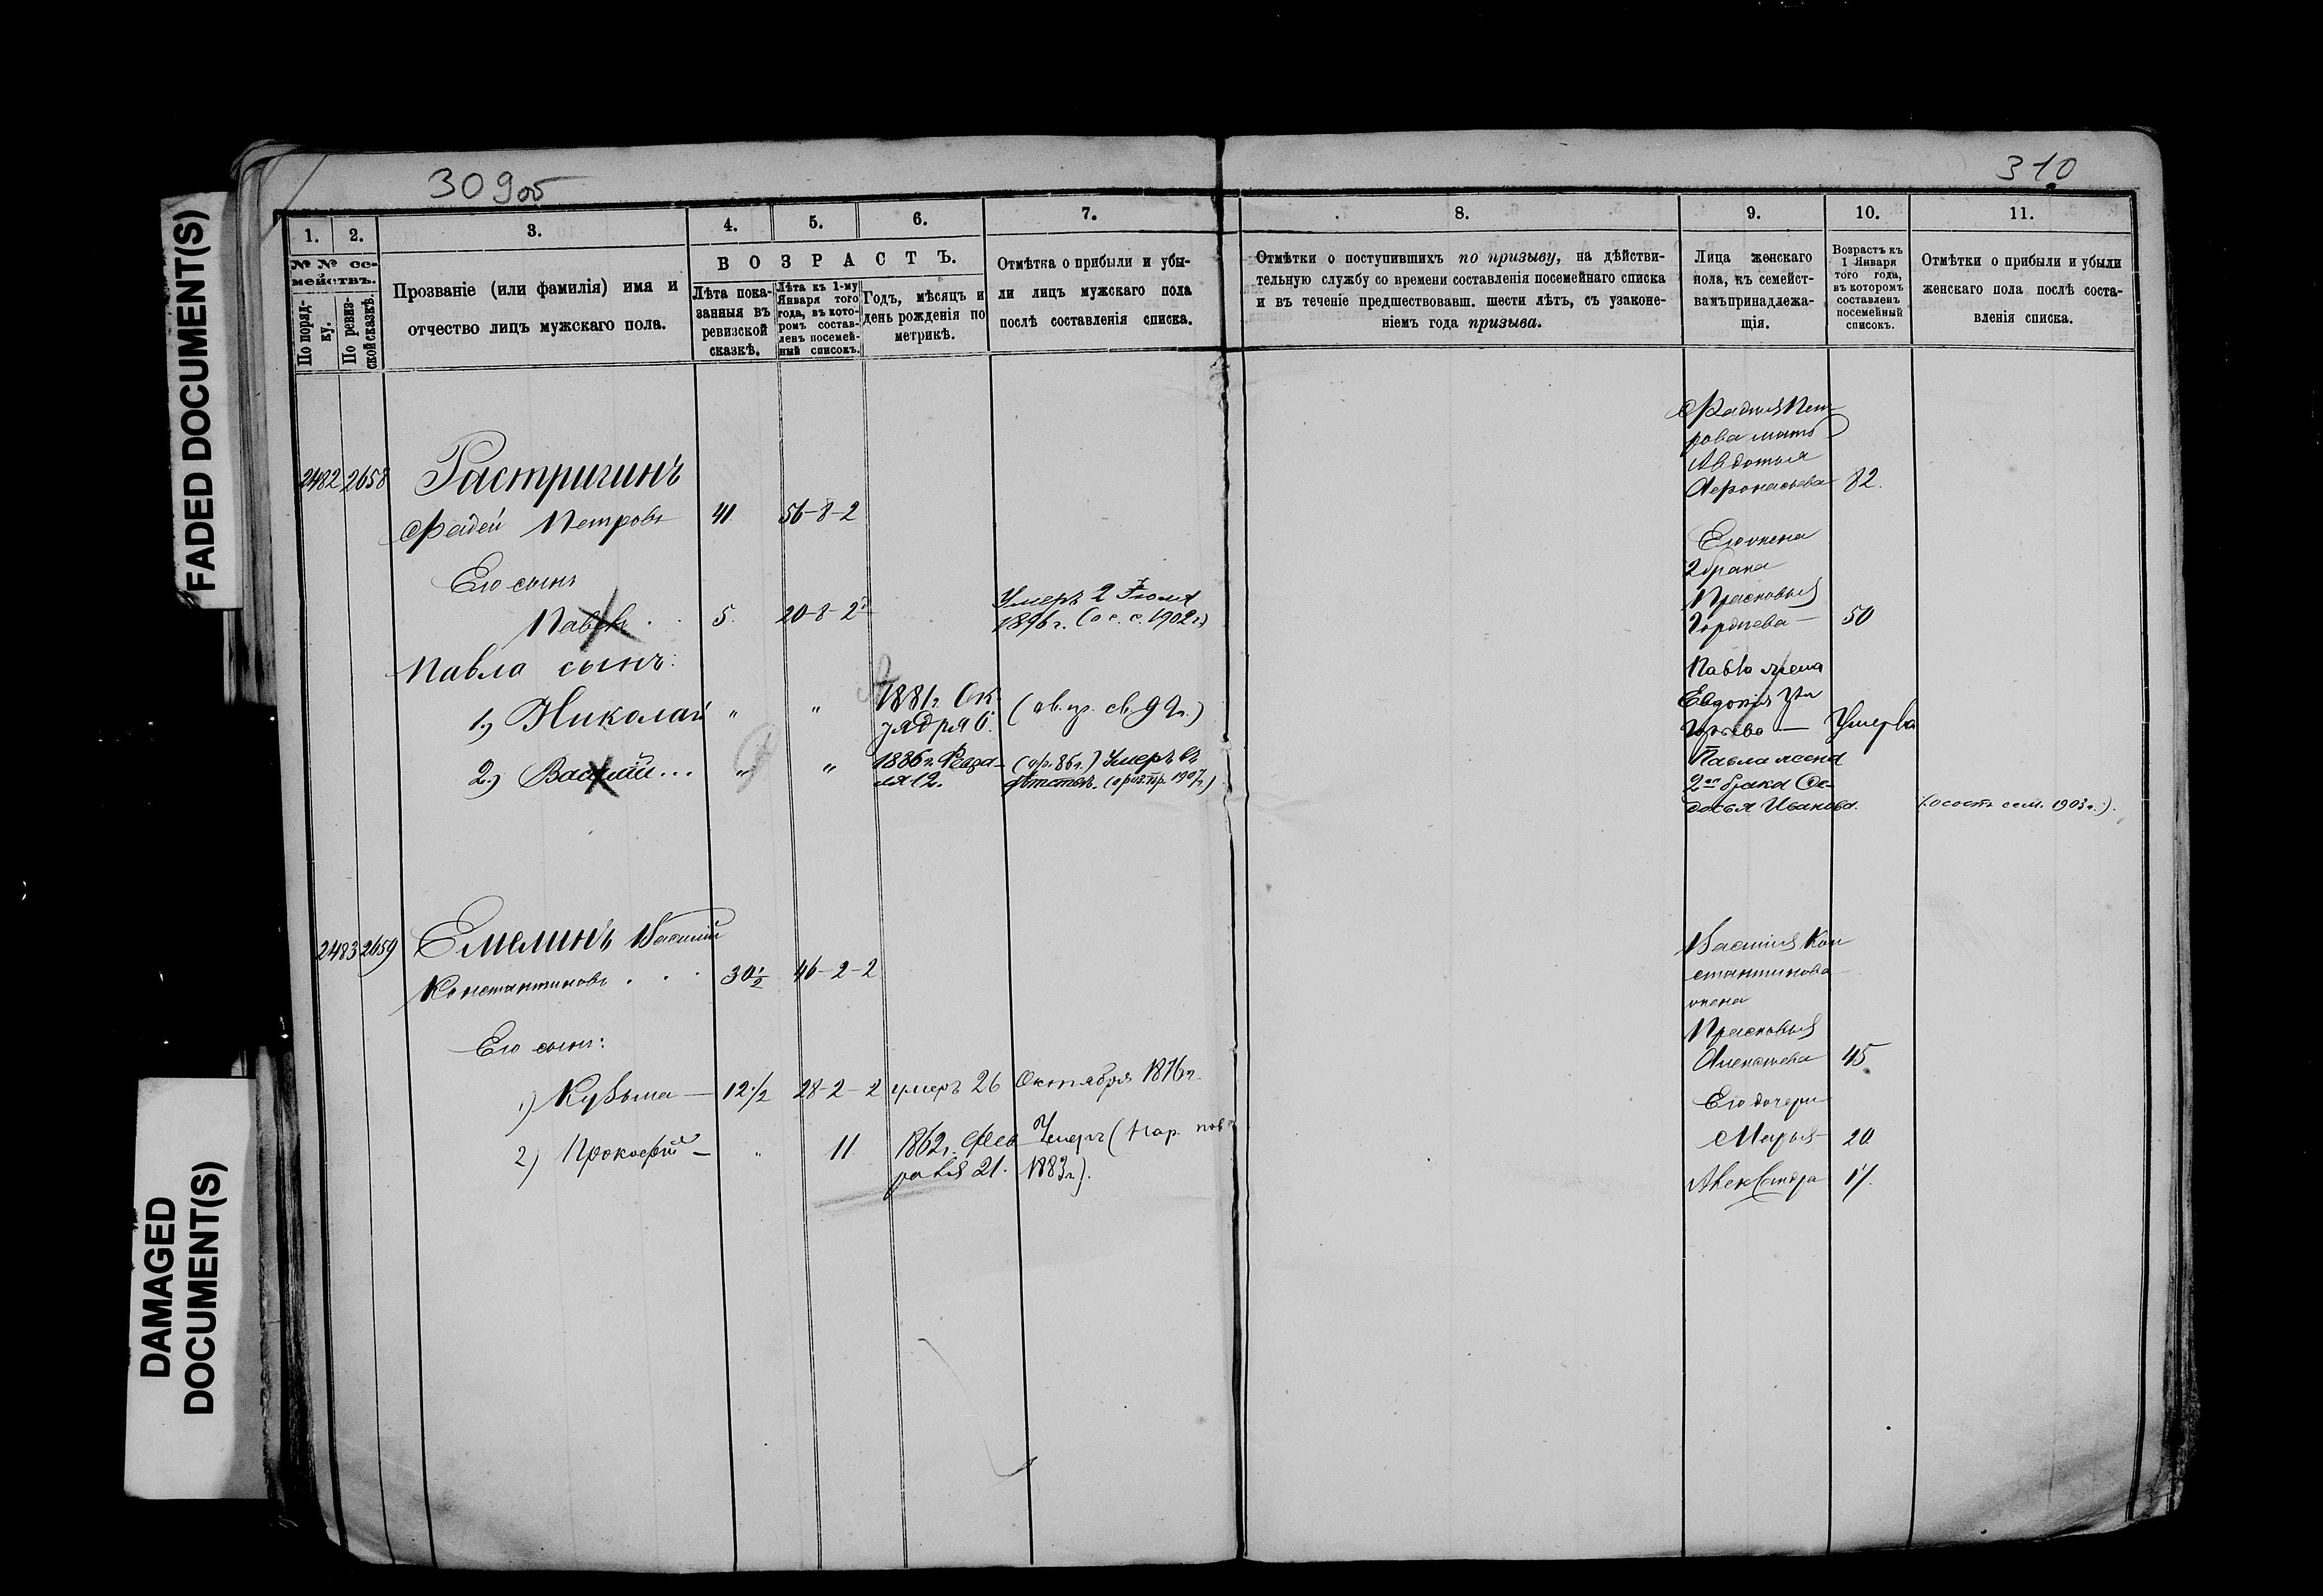 FADED DOCUMENT(S)
DAMAGED
DOCUMENT(S)
309об
310
1.
2.
3.
4.
5.
6.
7.
8.
9.
10.
11.
№ № се-
мействъ.
По поряд-
ку.
По ревиз-
ской сказкѣ.
Прозваніе (или фамилія) имя и
отчество лицъ мужскаго пола.
ВОЗРАСТЪ.
Лѣта пока-
занныя въ
ревизской
сказкѣ.
Лѣта къ 1-му
Января того
года, въ кото-
ромъ состав-
ленъ посемей-
ный списокъ.
Годъ, мѣсяцъ и
день рожденія по
метрикѣ.
Отмѣтка о прибыли и убы-
ли лицъ мужскаго пола
послѣ составленія списка.
Отмѣтки о поступившихъ по призыву, на дѣйстви-
тельную службу со времени составленія посемейнаго списка
и въ теченіе предшествовавш. шести лѣтъ, съ узаконе-
ніемъ года призыва.
Лица женскаго
пола, къ семейст-
вамъ принадлежа-
щія.
Возрастъ къ
1 Января
того года,
въ которомъ
составленъ
посемейный
списокъ.
Отмѣтки о прибыли и убыли
женскаго пола послѣ соста-
вленія списка.
2482 2658 Растригинъ
Фадей Петровъ 41 56-8-2
Его сынъ
Павелъ 5. 20-8-2 Умеръ 2 Іюля
1896 г. (о с. с. 1902 г.)
Павла сынъ:
1) Николай " " 1881 г. Ок-
тября 6.
2) Василій... " " 1886 г. Февра-
ля 12. (пр. 86 г.) Умеръ въ
дѣтствѣ. 1907 г.)
Фадея Пет-
рова мать
Авдотья
Афонасьева 82.
Его жена
2 брака
Прасковья
Гордѣева — 50
Павла жена
Евдокія
— Умерла
Павла жена
2го брака Ѳе-
досья Иванова. сем. 1903 г.).
2483 2659 Емелинъ Василій
Константиновъ . . . 30½ 46-2-2
Его сынъ:
1) Кузьма — 12½ 28-2-2 умеръ 26 Октября 1876 г.
2) Прокофій — " 11. 1862 г. Фев-
раля 21. Умеръ (нар.
1883 г.).
Василія Кон
стантинова
жена
Прасковья
Алексѣева 45
Его дочери
Марья — 20
Александра